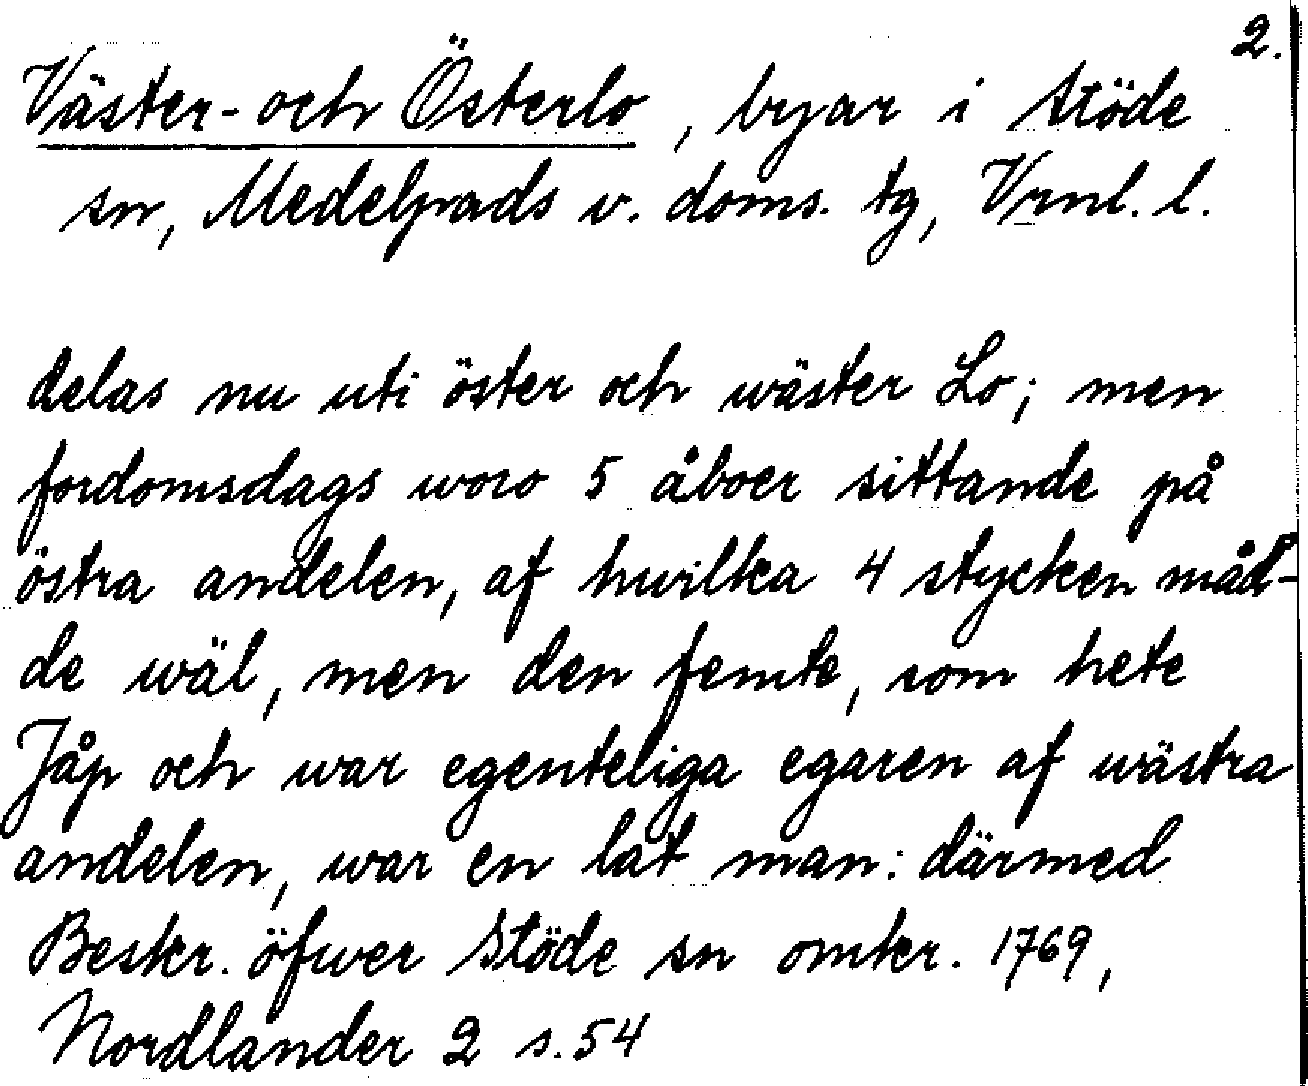 2.
Väster- och Österlo, byar i Stöde
sn, Medelpads v. doms. tg, Vrnl. l.
delas nu uti öster och wäster Lo; men
fordomsdags woro 5 åboer sittande på
östra andelen, af hwilka 4 stycken måd-
de wäl, men den femte, som hete
Jåp och war egenteliga egaren af wästra
andelen, war en lat man: därmed
Beskr. öfwer Stöde sn omkr. 1769,
Nordlander 2 s. 54